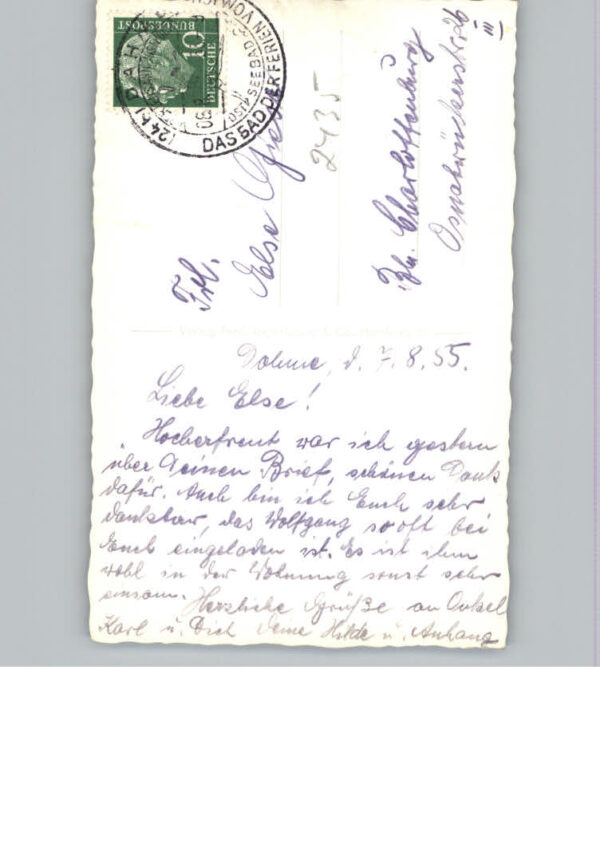 10
DEUTSCHE
BUNDESPOST
(24b) DAHME
OSTSEEBAD
DAS BAD DER FERIEN VOM ICH
Frl.
Else
2435
Bln. Charlottenburg
Osnabrückerstr. 26
III
Dahme, d. 7.8.55.
Liebe Else!
Hocherfreut war ich gestern
über Deinen Brief, schönen Dank
dafür. Auch bin ich Euch sehr
dankbar, das Wolfgang so oft bei
Euch eingeladen ist. Es ist ihm
wohl in der Wohnung sonst sehr
einsam. Herzliche Grüße an Onkel
Karl u. Dich Deine Hilde u. Anhang